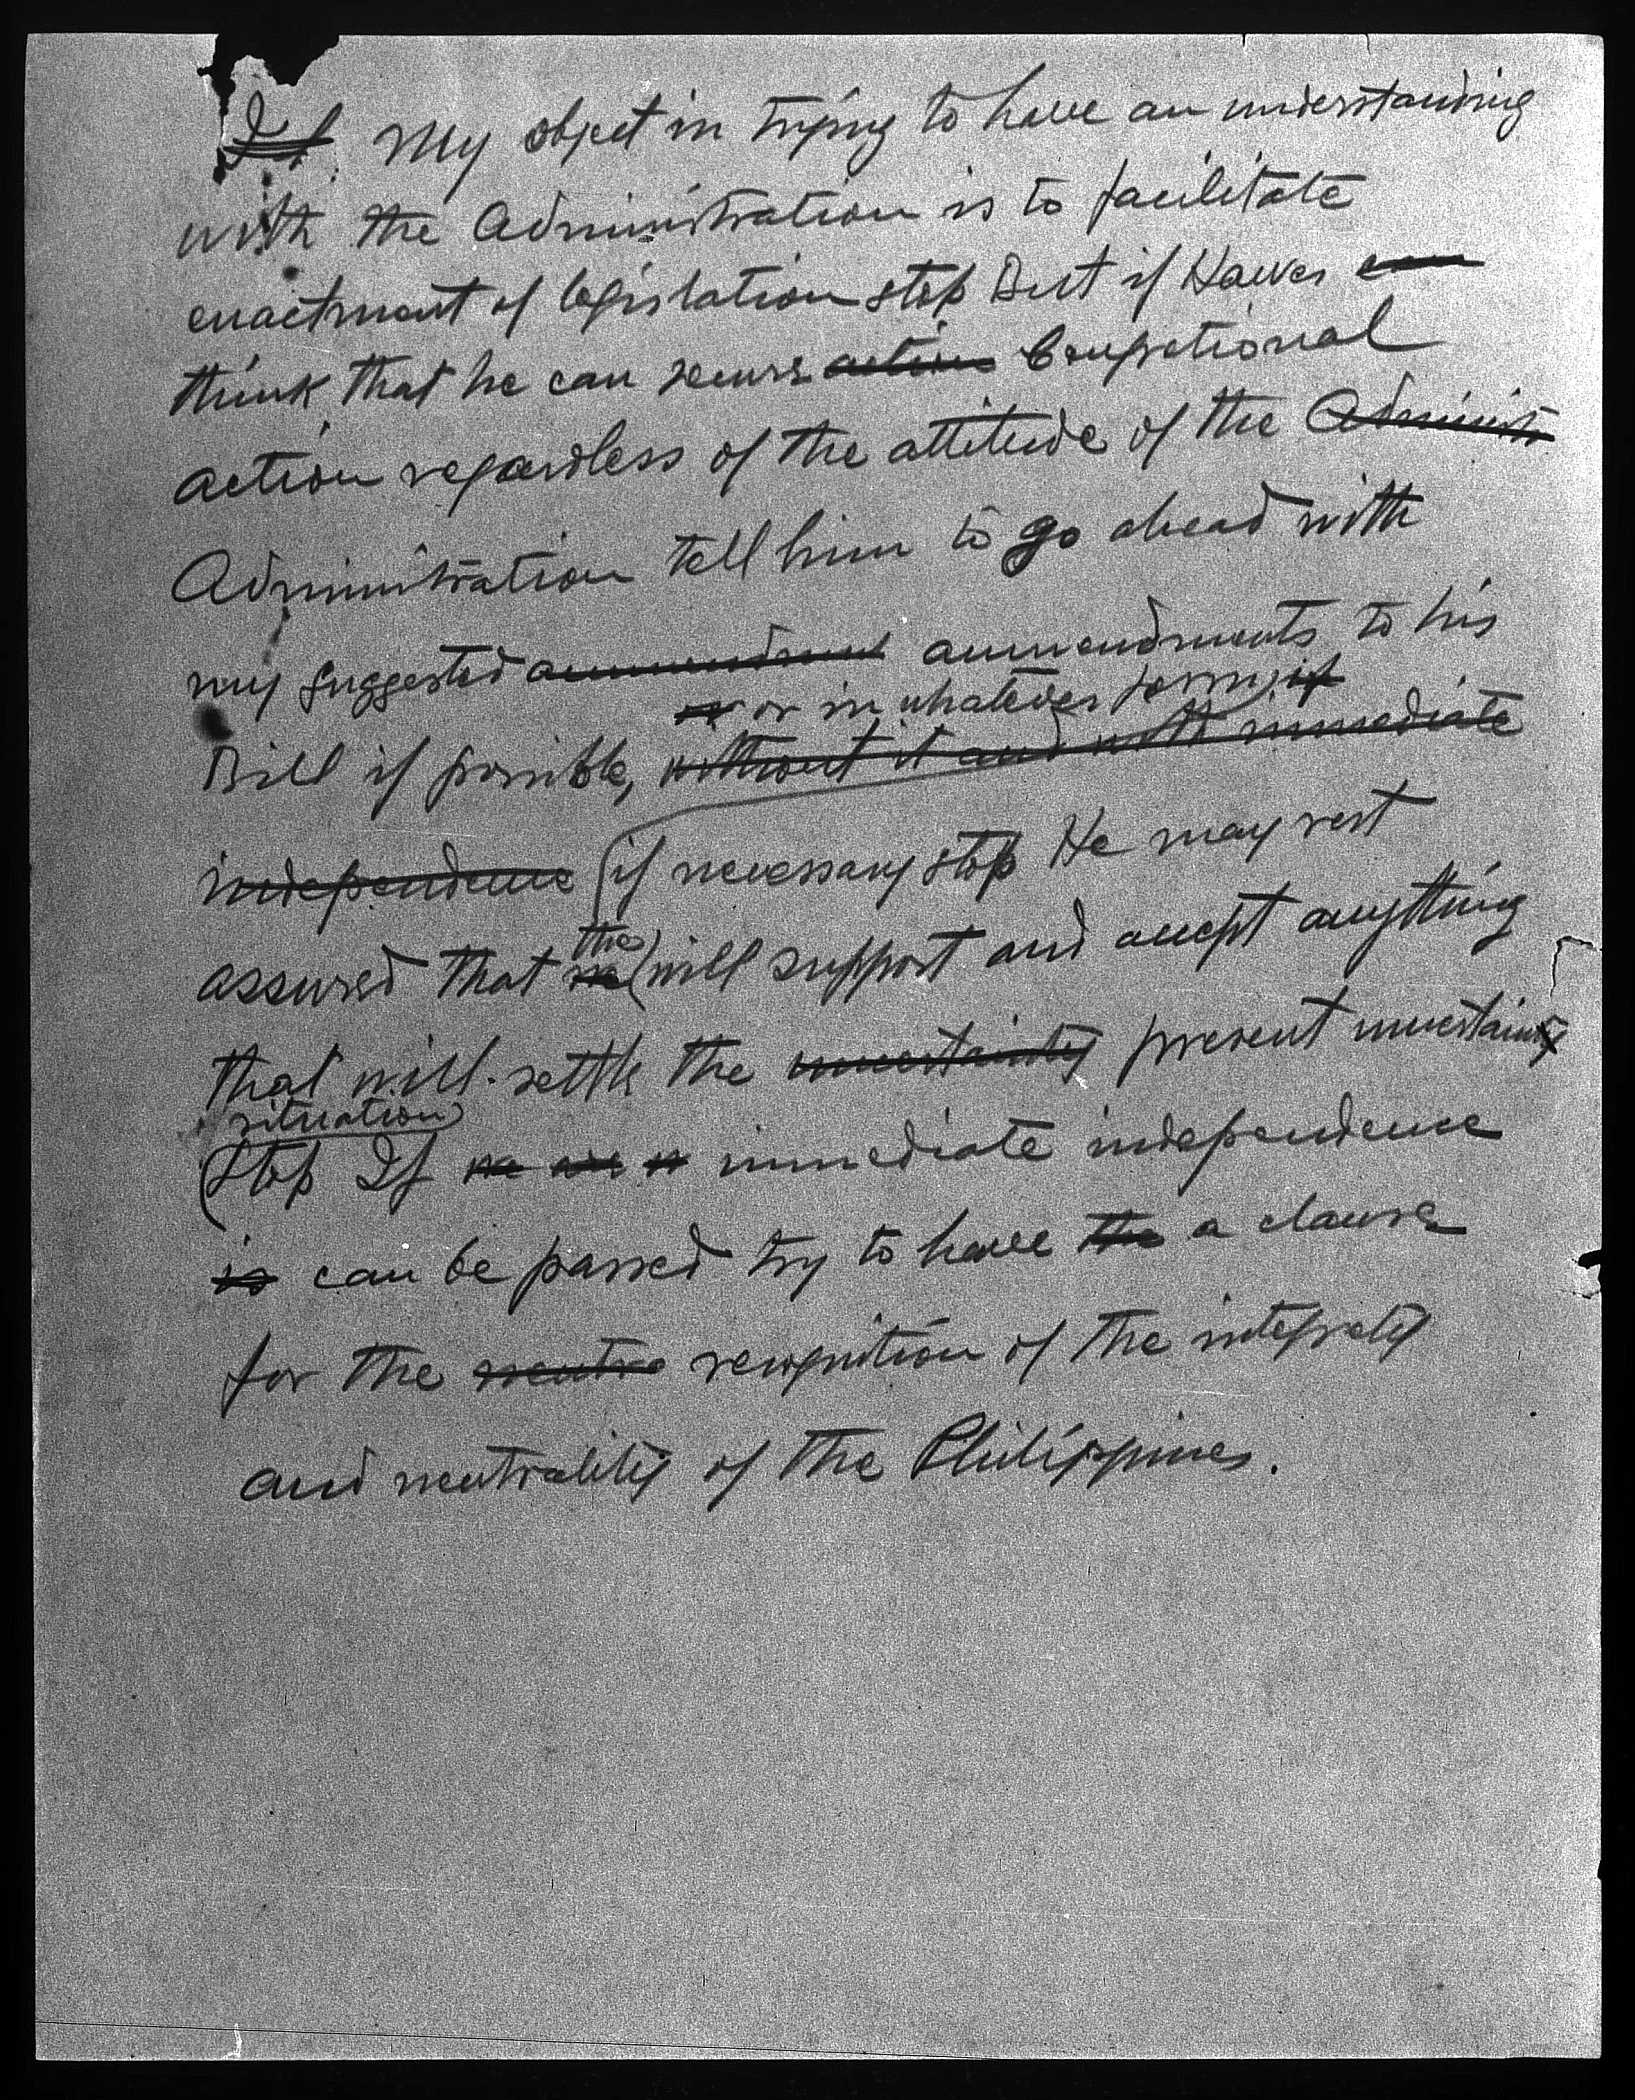 If My object in trying to have an understanding
with the Administration is to facilitate
enactment of legislation stop But if Hawes can
think that he can secure action Congretional
action regardless of the attitude of the Administ
Administration tell him to go ahead with
my suggested ammendment ammendments to his
or or in whatever form, if
Bill if possible, without it and with immediate
independence if necessary stop He may rest
the
assured that we will support and accept anything
that will settle the uncertainty present uncertain
situation
Stop If we immediate independence
is can be passed try to have the a clause
for the neutra recognition of the integrety
and neutrality of the Philippines.